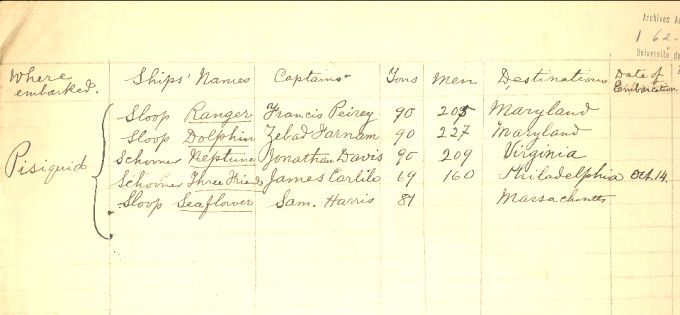 Archives A
1 62-
Université de
Where embarked. Ships' Names Captains Tons Men Destinations Date of Embarcation
Sloop Ranger Francis Peirey 90 205 Maryland
Sloop Dolphin Zebad Farnam 90 227 Maryland
Pisiquid Schooner Neptune Jonathan Davis 90 209 Virginia
Schooner Three Friends James Carlile 69 160 Philadelphia Oct. 14.
Sloop Seaflower Sam. Harris 81 Massachusetts